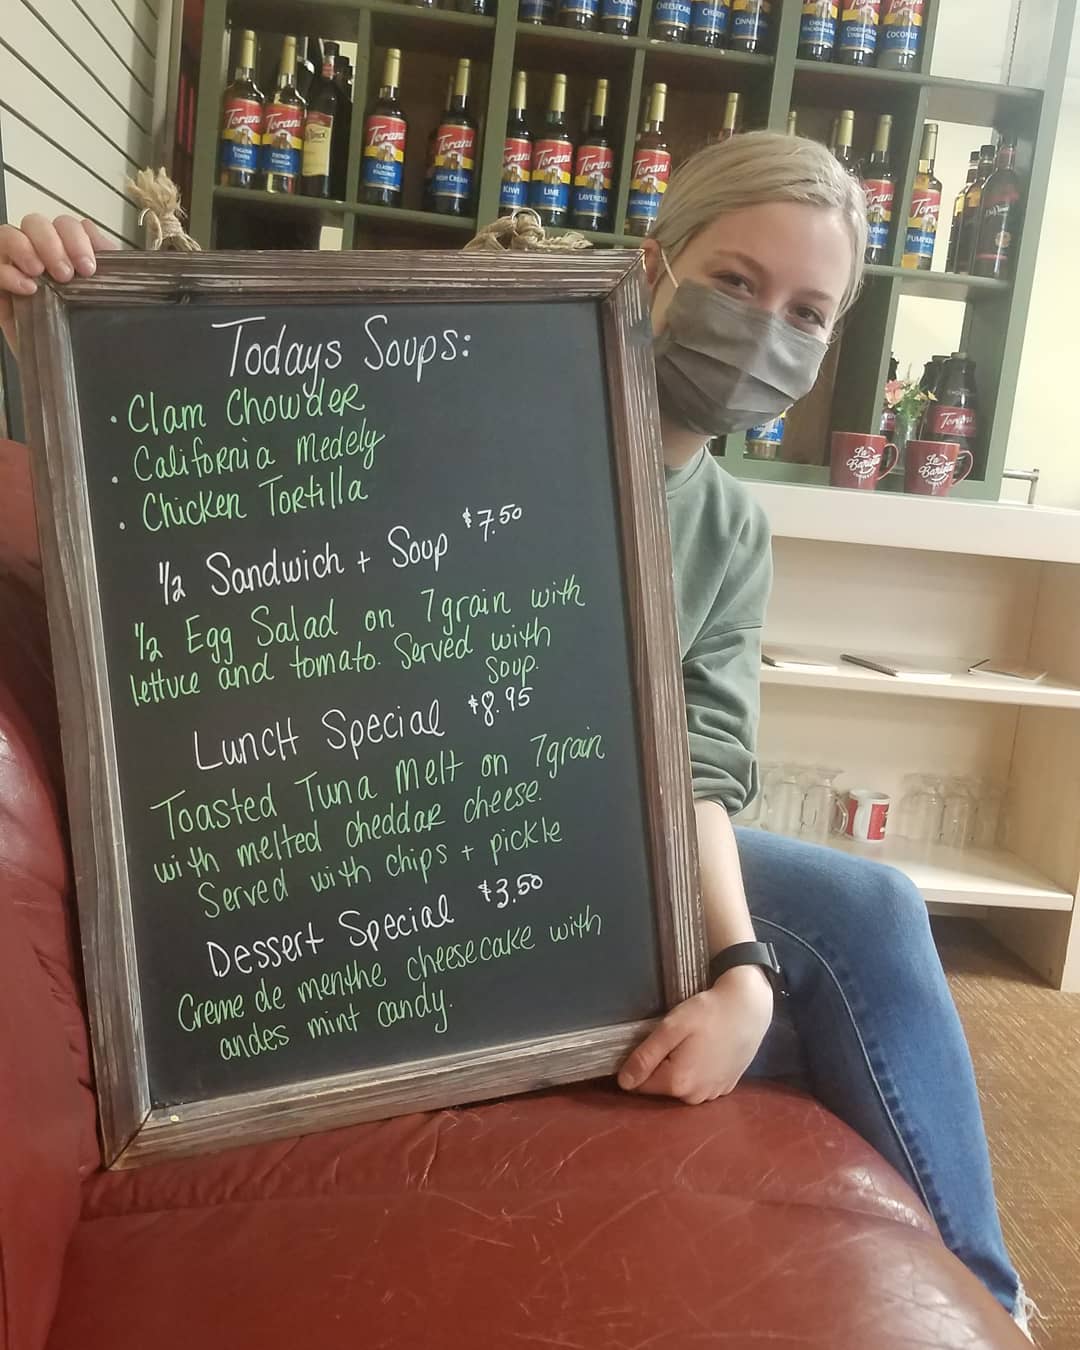 CHEESECAKE
CHERRY
CINNAMON
COCONUT
Torani
Torani
Torani
Torani
Torani
Torani
Torani
Torani
FRENCH VANILLA
CLASSIC HAZELNUT
IRISH CREAM
KIWI
LIME
LAVENDER
Torani
Torani
PUMPKIN
Torani
La Barista
La Barista
Todays Soups:
· Clam Chowder
· California Medely
· Chicken Tortilla
1/2 Sandwich + Soup $7.50
1/2 Egg Salad on 7grain with
lettuce and tomato. Served with
soup.
Lunch Special $8.95
Toasted Tuna Melt on 7grain
with melted cheddar cheese.
Served with chips + pickle
Dessert Special $3.50
Creme de menthe cheesecake with
andes mint candy.